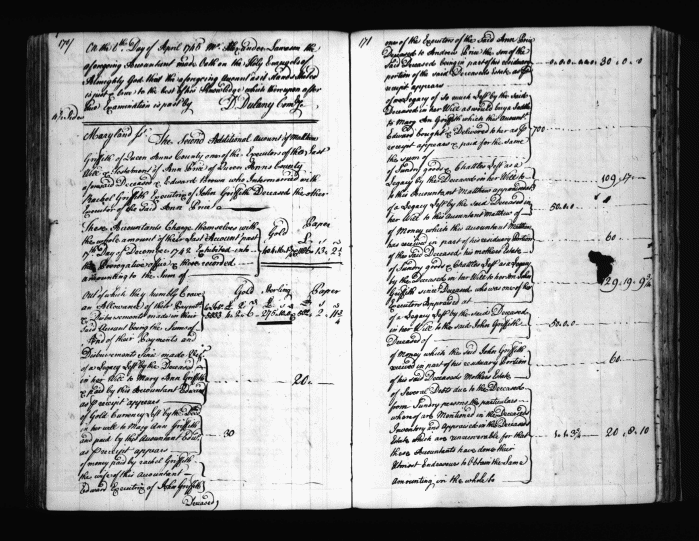 170
On the 6th Day of April 1745 Mr. Alexander Lawson the
aforegoing Accountant made Oath on the Holy Evangels of
Almighty God that the aforegoing Account as it stands Stated
is just & true to the best of his Knowledge which thereupon after
due Examination is past by D. Dulany Com. Gen.
Maryland ss. The Second Additional Account of Matthew
Griffith of Queen Anns County one of the Executors of the Last
Will & Testament of Ann Price of Queen Anns County
aforesaid Deceased & Edward Brown who Intermarried with
Rachel Griffith Executrix of John Griffith Deceased the other
Executor of the said Ann Price
These Accountants Charge themselves with
the whole amount of their Last Account past
17th Day of December 1742 Exhibited into
the Prerogative Office & there recorded
amounting to the Sum of
Gold Paper
Out of which they humbly Crave
an Allowance of their Payments
& Disbursements made in their
Said Account being the Sume of
Gold Sterling Paper
And of their Payments and
Disbursements Since made Viz.
of a Legacy Left by the Deceased
in her Will to Mary Ann Griffith
& paid by this Accountant Edward
as P receipt appears 20
of Gold Currency Left by the Deced
in her will to Mary Ann Griffith
and paid by this Accountant Edwd.
as P receipt appears 30
of money paid by Rachel Griffith
the wife of this Accountant
Edward Executrix of John Griffith
Deceased
171
one of the Executors of the Said Ann Price
Deceased to Andrew Price the son of the
Said Deceased being in part of his residuary
portion of the said Deceaseds Estate as P re
ceipt appears 30 . 0 . 0
of a Legacy of So much Left by the Said
Deceased in her Will as would buy a Saddle
to Mary Ann Griffith which this Accountt.
Edward bought & Delivered to her as P
receipt appears & paid for the same
the Sum of 700
of Sundry goods & Chattles Left as a
Legacy by the Deceased in her Will to
this Accountant Matthew appraised at 109 . 17
of a Legacy Left by the said Deceased in
her Will to this Accountant Matthew of 50 . 0 . 0
of Money which this Accountant Matthew
has received in part of his residuary Portion
of this said Deceased his mothers Estate 60
of Sundry goods & Chattles Left as a Legacy
by the Deceased in her Will to her son John
Griffith since Deceased who was one of her
Executors Appraised at 129 . 19 . 9 3/4
of a Legacy Left by the said Deceased
in her Will to the said John Griffith
Deceased of 50 . 0 . 0
of Money which the said John Griffith
received in part of his residuary Portion
of his said Deceased Mothers Estate 60
of Several Debts due to the Deceased
from Sundry persons the particulars
whereof are Mentioned in the Deceaseds
Inventory and Appraised in this Deceased
Estate which are unrecoverable for that
these Accountants have done their
Utmost Endeavours to Obtain the Same
Amounting in the whole to 20 . 8 . 10